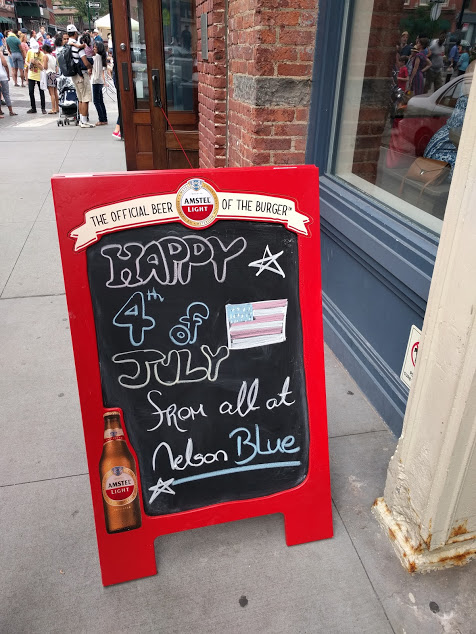 THE OFFICIAL BEER AMSTEL LIGHT OF THE BURGER™
HAPPY
4th
of
JULY
from all at
Nelson Blue
AMSTEL
AMSTEL
LIGHT